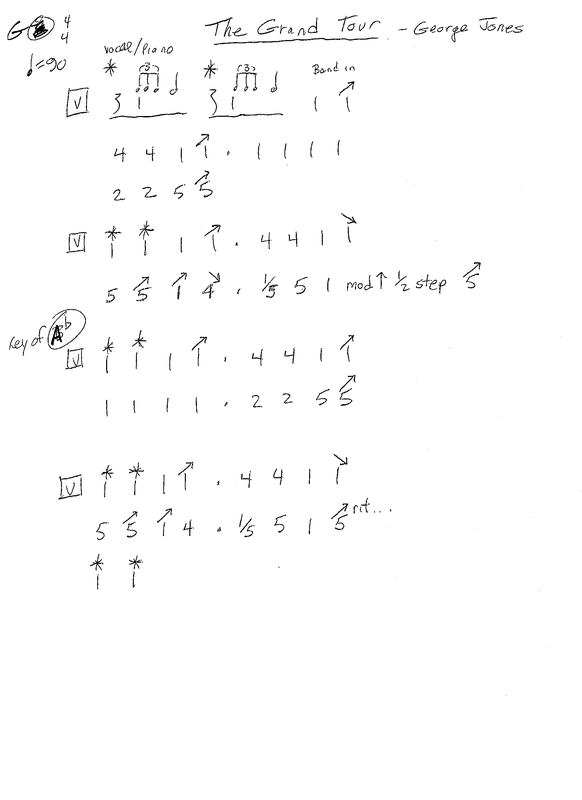 G 4/4 The Grand Tour - George Jones
♩=90 vocal/Piano
* 3 * 3 Band in
V 1 1 1 1↗
4 4 1 1↗ . 1 1 1 1
2 2 5 5↗
V 1* 1* 1 1↗ . 4 4 1 1↘
5 5↗ 1↗ 4↘ . 1/5 5 1 mod↑ 1/2 step 5↗
Key of Ab
V 1* 1* 1 1↗ . 4 4 1 1↗
1 1 1 1 . 2 2 5 5↗
V 1* 1* 1 1↗ . 4 4 1 1↘
5 5↗ 1↗ 4 . 1/5 5 1 5↗ rit...
1* 1*